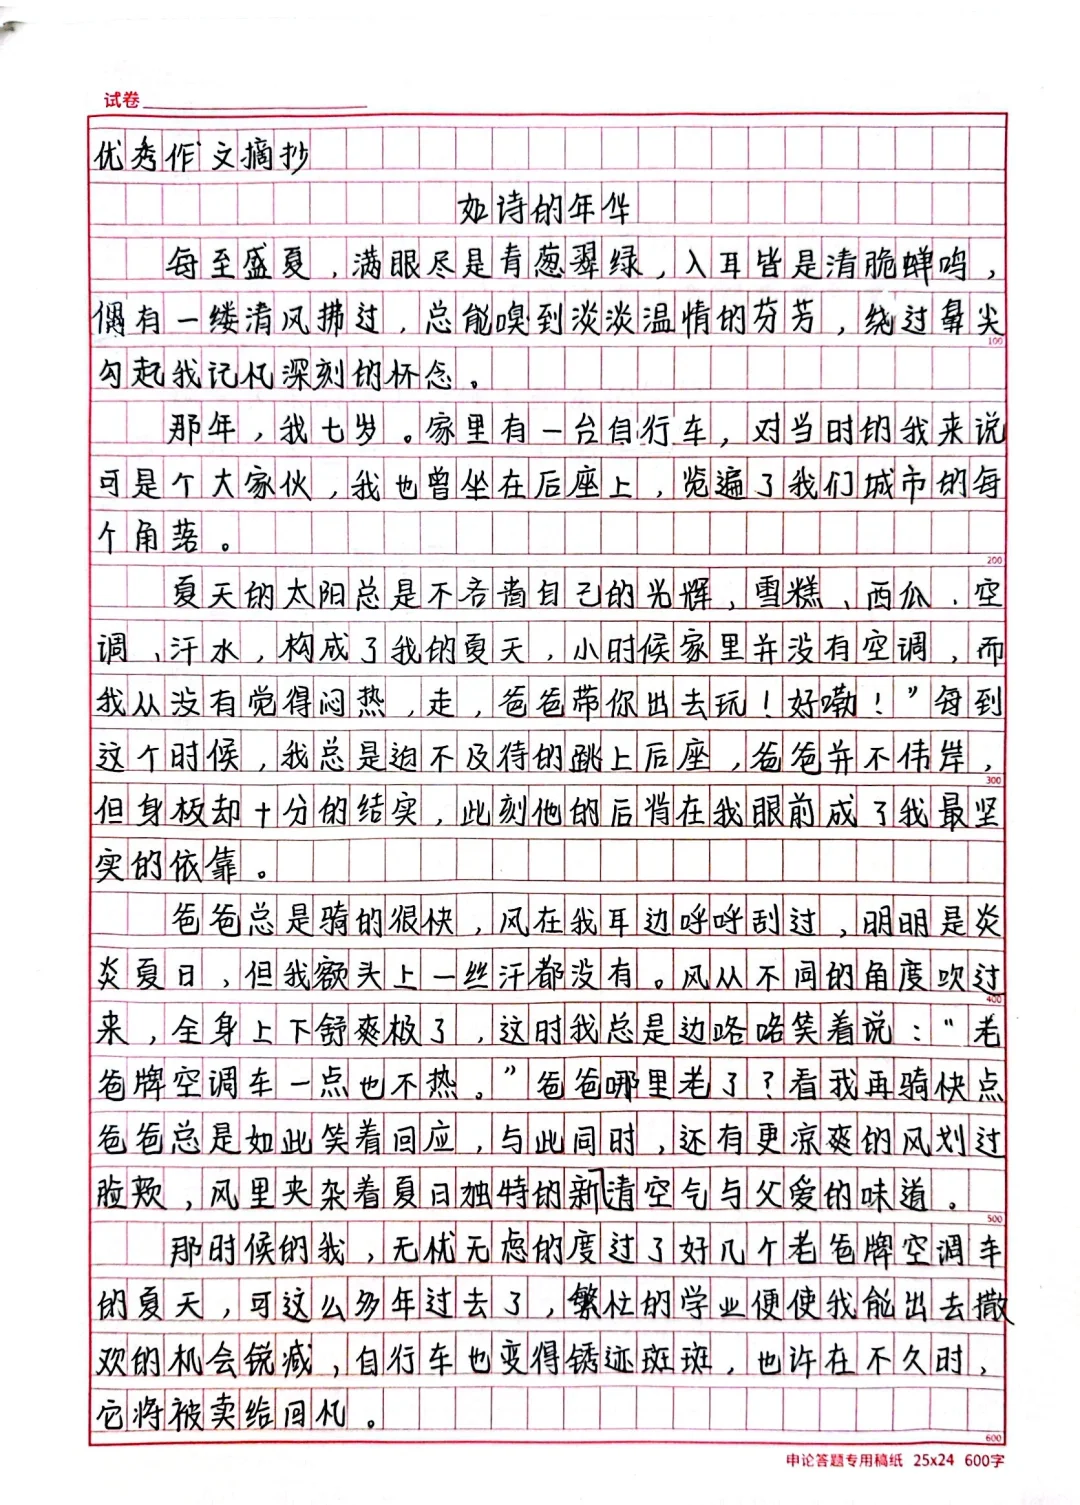 试卷
优秀作文摘抄
如诗的年华
每至盛夏，满眼尽是青葱翠绿，入耳皆是清脆蝉鸣，
偶有一缕清风拂过，总能嗅到淡淡温情的芬芳，绕过鼻尖
100
勾起我记忆深刻的怀念。
那年，我七岁。家里有一台自行车，对当时的我来说
可是个大家伙，我也曾坐在后座上，览遍了我们城市的每
个角落。
200
夏天的太阳总是不吝啬自己的光辉，雪糕、西瓜、空
调、汗水，构成了我的夏天，小时候家里并没有空调，而
我从没有觉得闷热，走，爸爸带你出去玩！好嘞！”每到
这个时候，我总是迫不及待的跳上后座，爸爸并不伟岸，
300
但身板却十分的结实，此刻他的后背在我眼前成了我最坚
实的依靠。
爸爸总是骑的很快，风在我耳边呼呼刮过，明明是炎
炎夏日，但我额头上一丝汗都没有。风从不同的角度吹过
400
来，全身上下舒爽极了，这时我总是边咯咯笑着说：“老
爸牌空调车一点也不热。”爸爸哪里老了？看我再骑快点
爸爸总是如此笑着回应，与此同时，还有更凉爽的风划过
脸颊，风里夹杂着夏日独特的新清空气与父爱的味道。
500
那时候的我，无忧无虑的度过了好几个老爸牌空调车
的夏天，可这么多年过去了，繁忙的学业便使我能出去撒
欢的机会锐减，自行车也变得锈迹斑斑，也许在不久时，
它将被卖给回机。
600
申论答题专用稿纸 25x24 600字